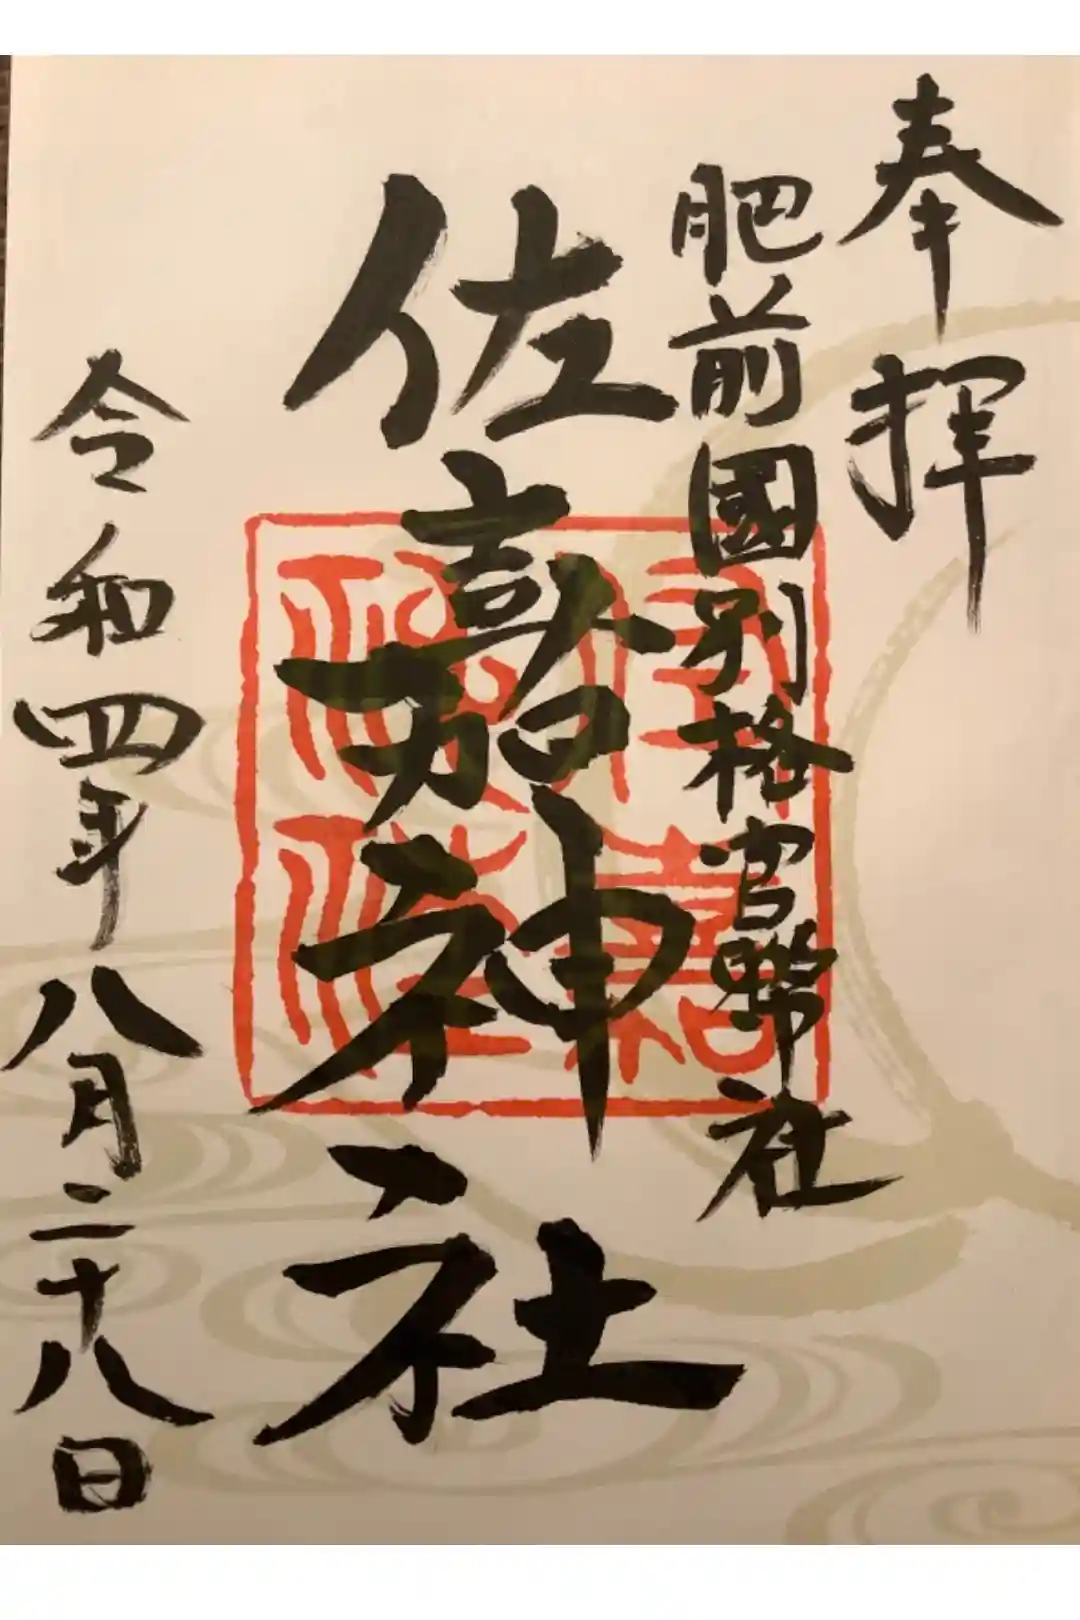 奉拝
肥前國別格官幣社
佐嘉神社
令和四年八月二十八日